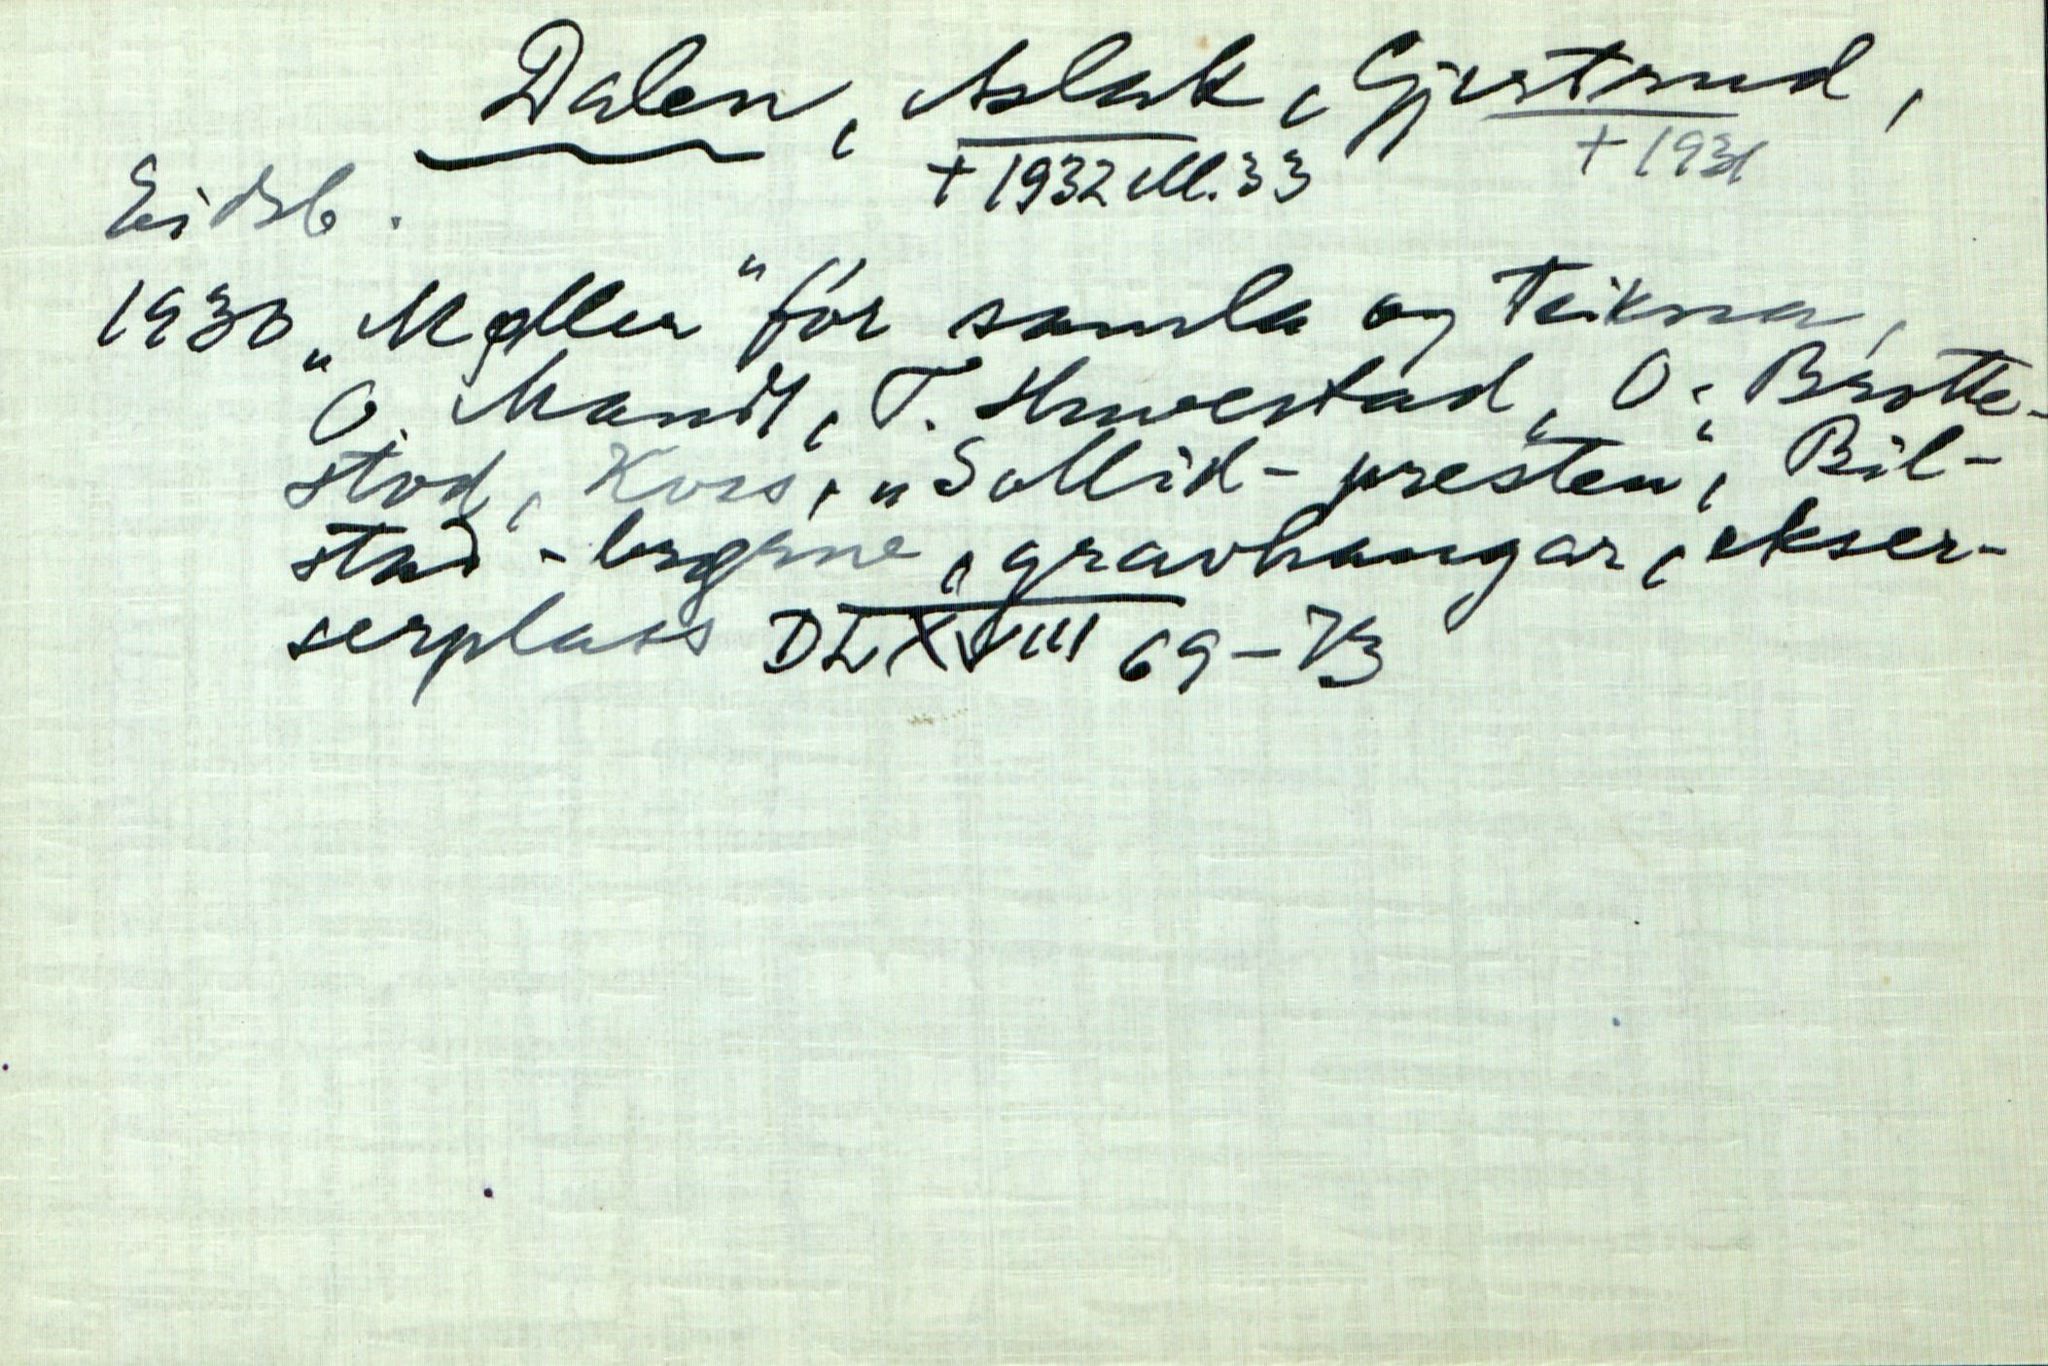 Dalen, Aslak, Gjertrud,
+ 1932 ell. 33 + 1931
Eidsb.
1930 "Møller" för samla og teikna,
O. Mandt, T. Huvestad, O. Brotte-
stod, Kors, "Sollid-presten", Bil-
stad-bygene, gravhaugar, ekser-
serplass DLXVIII 69-73